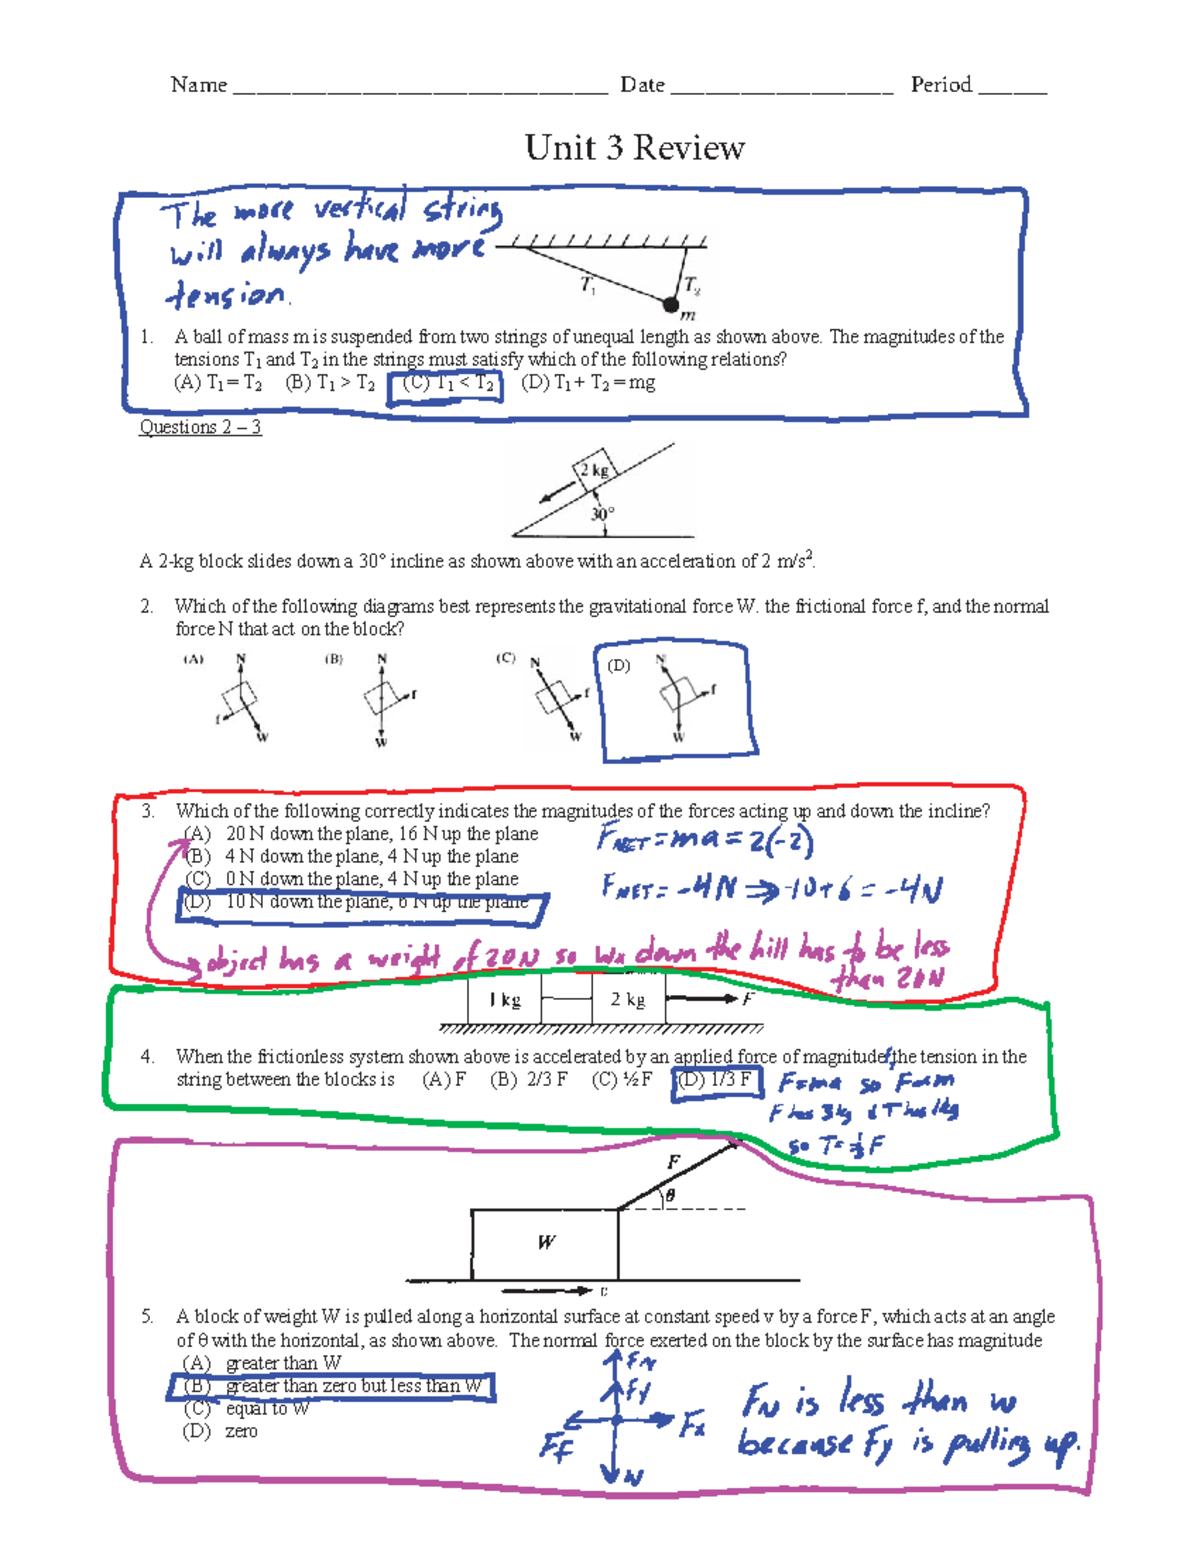 Name ________________________________ Date ___________________ Period ______
Unit 3 Review
The more vertical string
will always have more
tension.
T1 T2
m
1. A ball of mass m is suspended from two strings of unequal length as shown above. The magnitudes of the
tensions T1 and T2 in the strings must satisfy which of the following relations?
(A) T1 = T2 (B) T1 > T2 (C) T1 < T2 (D) T1 + T2 = mg
Questions 2 – 3
2 kg
30°
A 2-kg block slides down a 30° incline as shown above with an acceleration of 2 m/s2.
2. Which of the following diagrams best represents the gravitational force W. the frictional force f, and the normal
force N that act on the block?
(A) N f W (B) N f W (C) N f W (D) N f W
3. Which of the following correctly indicates the magnitudes of the forces acting up and down the incline?
(A) 20 N down the plane, 16 N up the plane
(B) 4 N down the plane, 4 N up the plane
(C) 0 N down the plane, 4 N up the plane
(D) 10 N down the plane, 6 N up the plane
FNET = ma = 2(-2)
FNET = -4N ⇒ -10+6 = -4N
object has a weight of 20N so Wx down the hill has to be less
than 20N
1 kg 2 kg F
4. When the frictionless system shown above is accelerated by an applied force of magnitude F, the tension in the
string between the blocks is (A) F (B) 2/3 F (C) ½ F (D) 1/3 F
F=ma so F∝m
F has 3kg & T has 1kg
so T= 1/3 F
F
θ
W
v
5. A block of weight W is pulled along a horizontal surface at constant speed v by a force F, which acts at an angle
of θ with the horizontal, as shown above. The normal force exerted on the block by the surface has magnitude
(A) greater than W
(B) greater than zero but less than W
(C) equal to W
(D) zero
FN
Fy
Fx
Ff
FN is less than w
because Fy is pulling up.